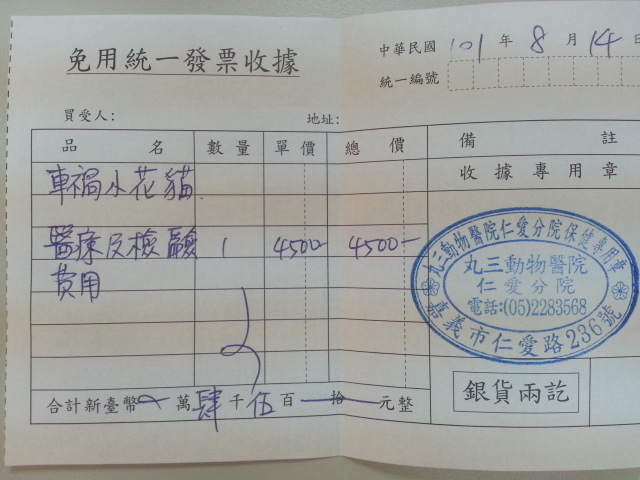 免用統一發票收據
中華民國 101 年 8 月 14 日
統一編號
買受人: 地址:
品名 數量 單價 總價 備註
收據專用章
車禍小花貓
醫療及檢驗 1 4500- 4500-
費用
丸三動物醫院仁愛分院保健專用章
丸三動物醫院
仁愛分院
電話:(05)2283568
嘉義市仁愛路236號
合計新臺幣 萬肆千伍百拾元整
銀貨兩訖